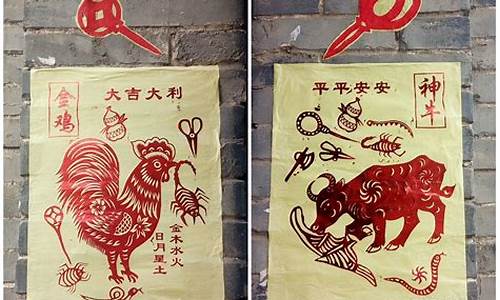 金鸡
大吉大利
金木水火
日月星土
神牛
平平安安